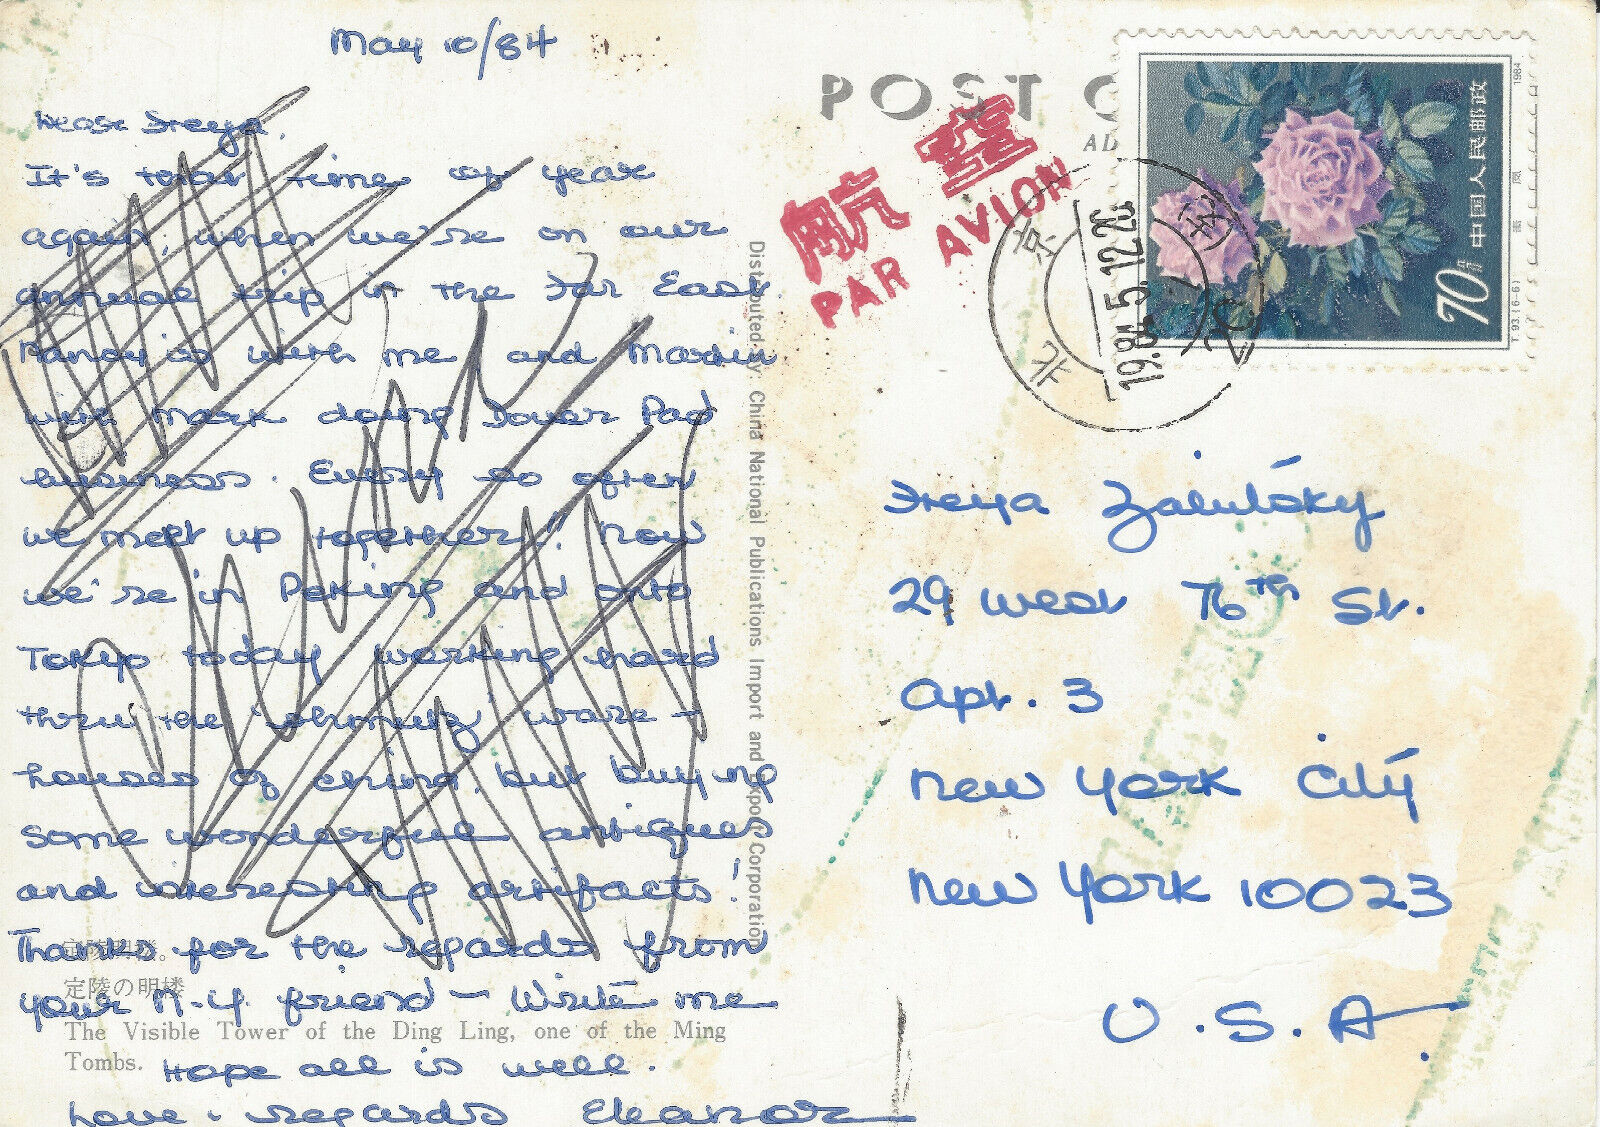 May 10/84
Dear Freya,
It's that time of year
again, when we're on our
annual trip in the Far East.
is with me and Martin
with Mark doing Dover Pad
business. Every so often
we meet up together". Now
we're in Peking and onto
Tokyo today working hard
thru the ware-
houses of china, but buying
some wonderful antiques
and interesting artifacts!
Thanks for the regards from
your N.Y. friend - Write me
Hope all is well.
Love - regards Eleanor
定陵明楼。
定陵の明楼
The Visible Tower of the Ding Ling, one of the Ming
Tombs.
Distributed by China National Publications Import and Export Corporation
POST C
AD
航空
PAR AVION
北京
1984.5.12.22
中国人民邮政
70分
1984
T.93.(6-6)
Freya Zalutsky
29 West 76th St.
Apt. 3
New York City
New York 10023
U.S.A.